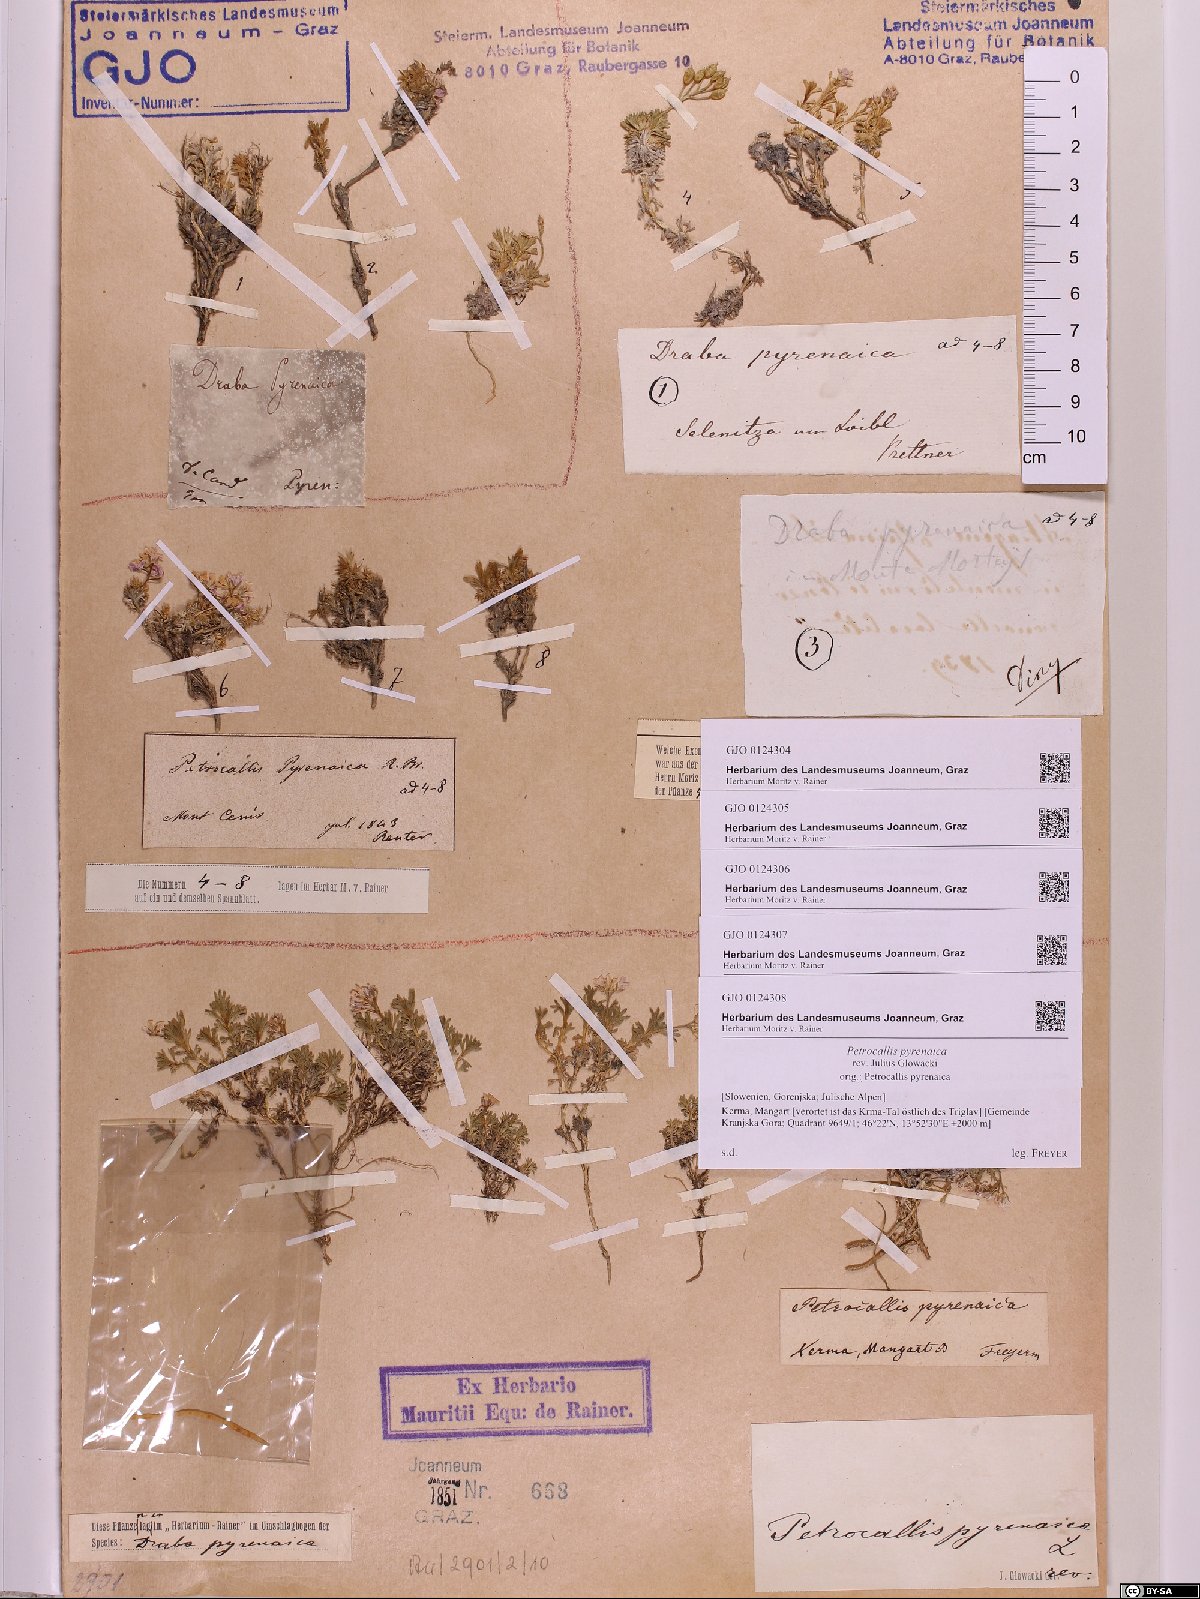 Steiermärkisches Landesmuseum
Joanneum - Graz
GJO
Inventar-Nummer:
Steierm. Landesmuseum Joanneum
Abteilung für Botanik
A 8010 Graz, Raubergasse 10
Steiermärkisches
Landesmuseum Joanneum
Abteilung für Botanik
A-8010 Graz, Raube
0
1
2
3
4
5
6
7
8
9
10
cm
1
2
4
5
Draba Pyrenaica
Pyren:
Draba pyrenaica ad 4-8
1
Selenitza am Loibl
Draba pyrenaica ad 4-8
in Monte
3
6
7
8
Petrocallis Pyrenaica R. Br.
ad 4-8
Mont Cenis
jul. 1843
Reuter.
Die Nummern 4-8 lagen im Herbar M. v. Rainer
auf ein und demselben Spannblatt.
Welche Exem
war aus der
Herrn Moriz
der Pflanze
GJO 0124304
Herbarium des Landesmuseums Joanneum, Graz
Herbarium Moritz v. Rainer
GJO 0124305
Herbarium des Landesmuseums Joanneum, Graz
Herbarium Moritz v. Rainer
GJO 0124306
Herbarium des Landesmuseums Joanneum, Graz
Herbarium Moritz v. Rainer
GJO 0124307
Herbarium des Landesmuseums Joanneum, Graz
Herbarium Moritz v. Rainer
GJO 0124308
Herbarium des Landesmuseums Joanneum, Graz
Herbarium Moritz v. Rainer
Petrocallis pyrenaica
rev. Julius Glowacki
orig.: Petrocallis pyrenaica
[Slowenien, Gorenjska; Julische Alpen]
Kerma, Mangart [verortet ist das Krma-Tal östlich des Triglav] [Gemeinde
Kranjska Gora; Quadrant 9649/1; 46°22'N, 13°52'30"E +2000 m]
s.d. leg. FREYER
Petrocallis pyrenaica
Kerma, Mangart
Ex Herbario
Mauritii Equ: de Rainer.
Joanneum
Jahrgang
1851 Nr. 668
GRAZ.
2901/2/10
Diese Pflanze lag im „Herbarium-Rainer" im Umschlagbogen der
Species: Draba pyrenaica
2901
Petrocallis pyrenaica
L
J. Glowacki rev:
CC BY-SA